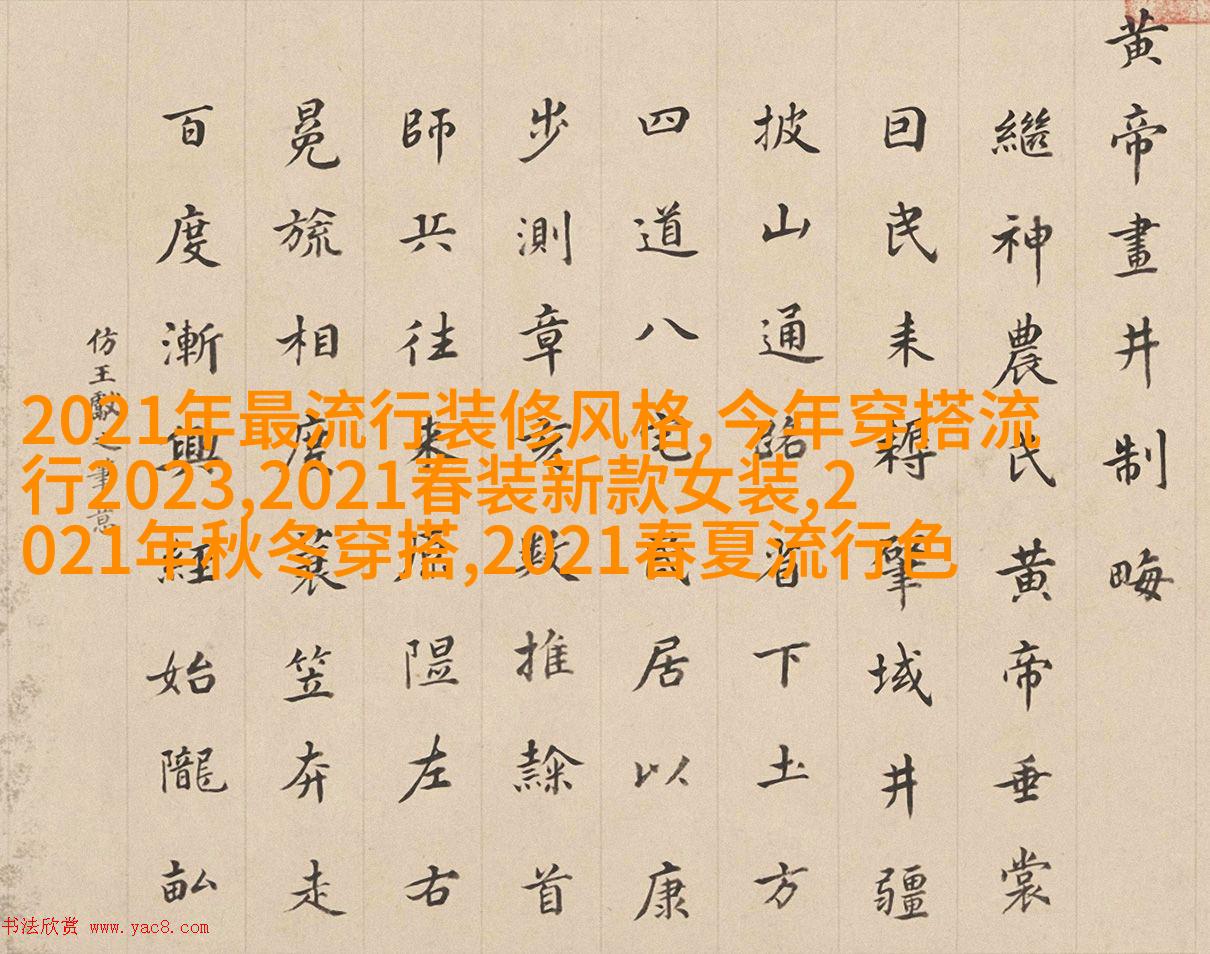 黄帝畫井制畮
繼神農氏黄帝垂裳
囙民耒耨肇域井疆
披山通路省下土方
四道八宅居以康
步測章亥数推隸首
師兵往来隰左右
冕旒相度蓑笠奔走
百度漸興経始隴畝
仿王獻之筆意
2021年最流行装修风格,今年穿搭流
行2023,2021春装新款女装,2
021年秋冬穿搭,2021春夏流行色
书法欣赏 www.yac8.com